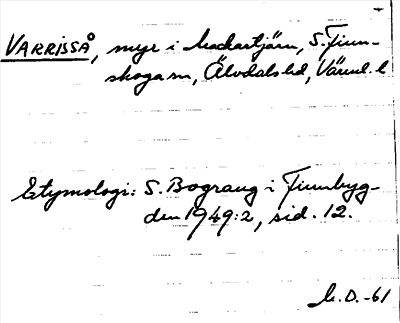 VARRISSÅ, myr i Mackartjärn, S. Finn-
skoga sn, Älvdals hd, Värml. l
Etymologi: S. Bograng i Finnbyg-
den 1949:2, sid. 12.
M.O. -61